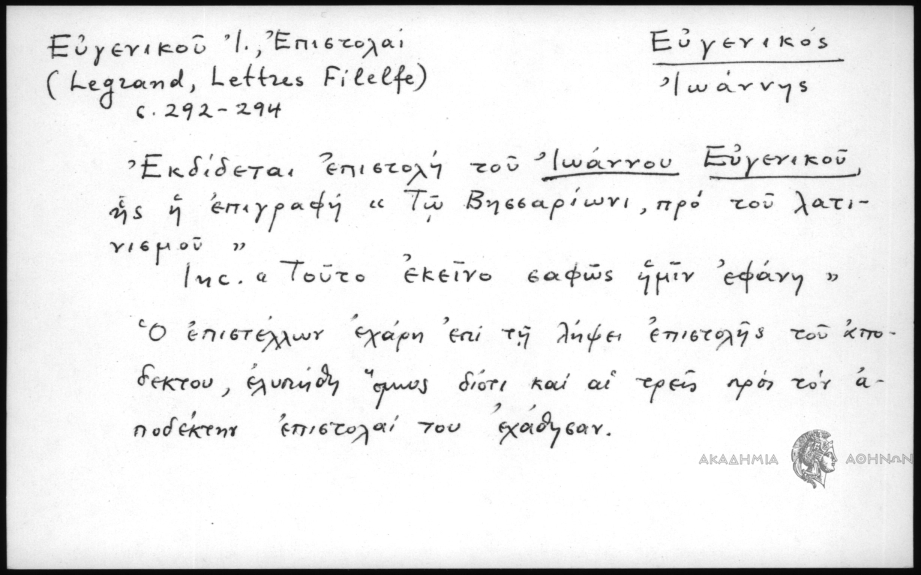 Εὐγενικοῦ Ἰ., Ἐπιστολαί
(Legrand, Lettres Filelfe)
σ. 292-294
Εὐγενικός
Ἰωάννης
Ἐκδίδεται ἐπιστολή τοῦ Ἰωάννου Εὐγενικοῦ,
ἧς ἡ ἐπιγραφή «Τῷ Βησσαρίωνι, πρό τοῦ λατι-
νισμοῦ»
Inc. «Τοῦτο ἐκεῖνο σαφῶς ἡμῖν ἐφάνη»
Ὁ ἐπιστέλλων ἐχάρη ἐπί τῇ λήψει ἐπιστολῆς τοῦ ἀπο-
δεκτου, ἐλυπήθη ὅμως διότι καί αἱ τρεῖς πρός τόν ἀ-
ποδέκτην ἐπιστολαί του ἐχάθησαν.
ΑΚΑΔΗΜΙΑ ΑΘΗΝΩΝ